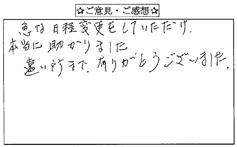 ☆ご意見・ご感想☆
急な日程変更をしていただけ、
本当に助かりました
遠い所まで、ありがとうございました。